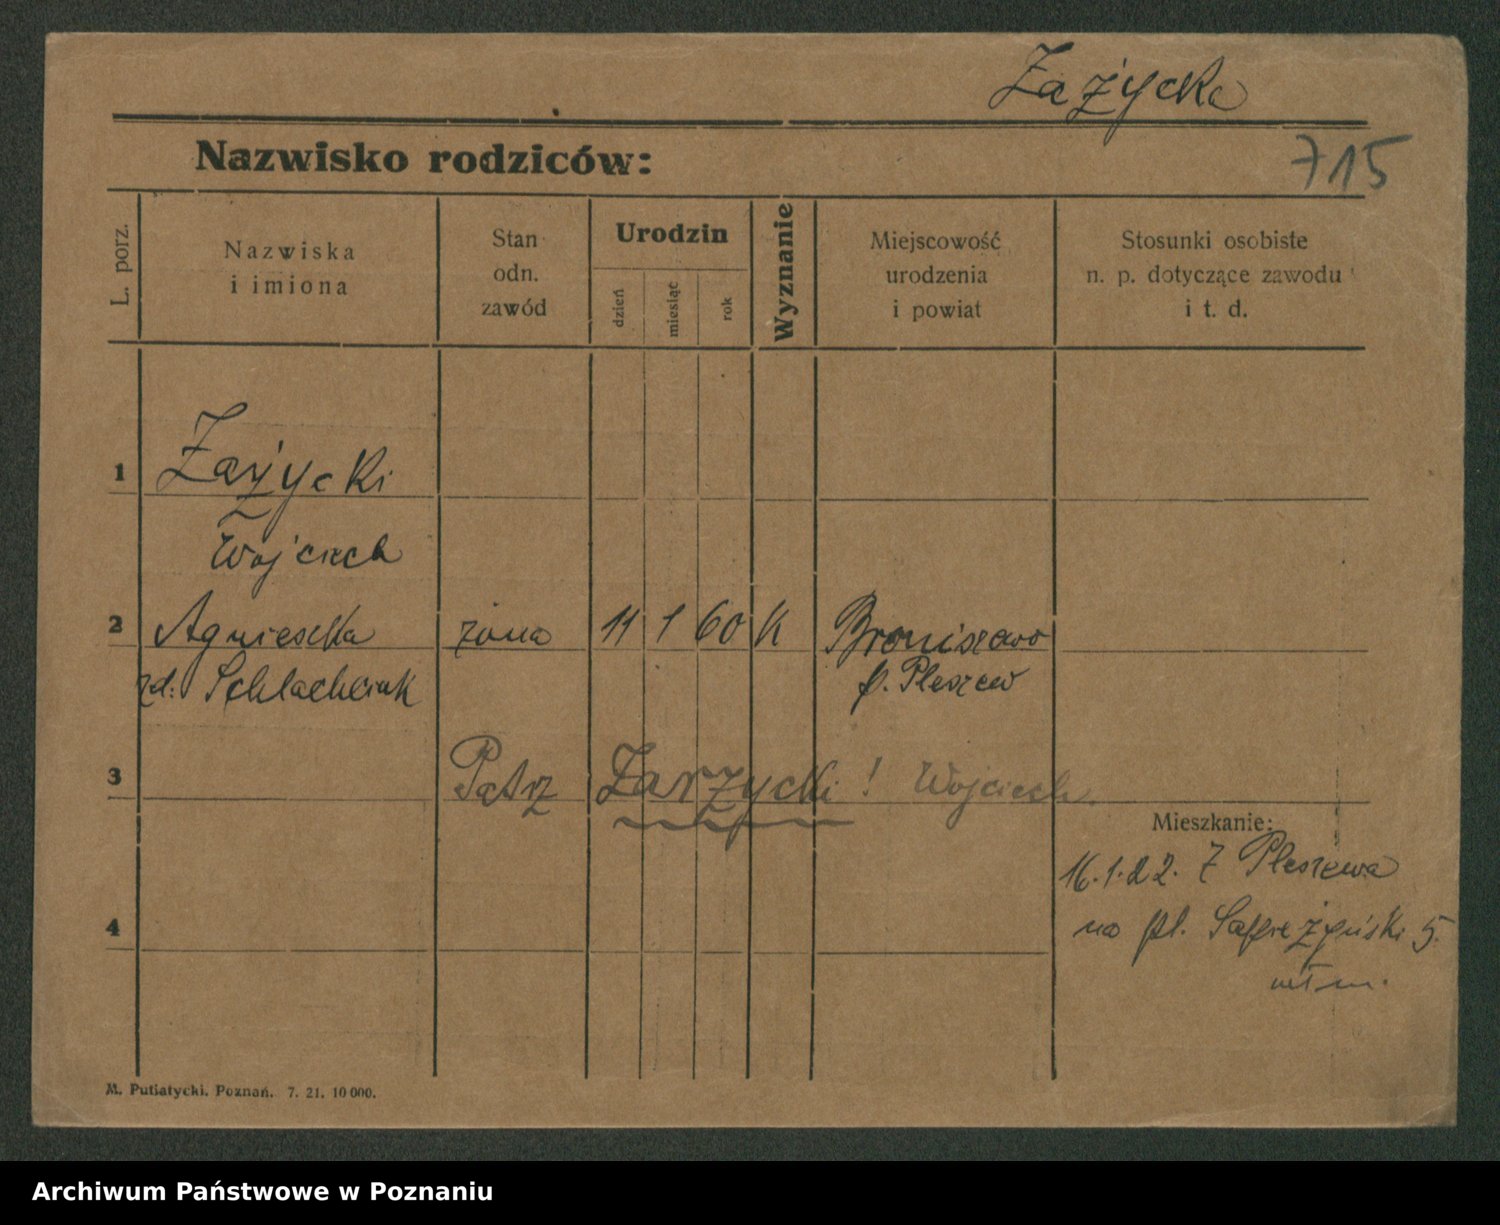 Zażycka
Nazwisko rodziców:
715
L. porz.
Nazwiska
i imiona
Stan
odn.
zawód
Urodzin
dzień
miesiąc
rok
Wyznanie
Miejscowość
urodzenia
i powiat
Stosunki osobiste
n. p. dotyczące zawodu
i t. d.
1 Zażycki
Wojciech
2 Agnieszka żona 11 1 60 K Broniszewo
zd: Schlachciak p. Pleszew
3 Patrz Zarzycki! Wojciech.
Mieszkanie:
16.1.22. Z Pleszewa
4
na pl. Sapieżyński 5.
M. Putiatycki. Poznań. 7. 21. 10 000.
Archiwum Państwowe w Poznaniu